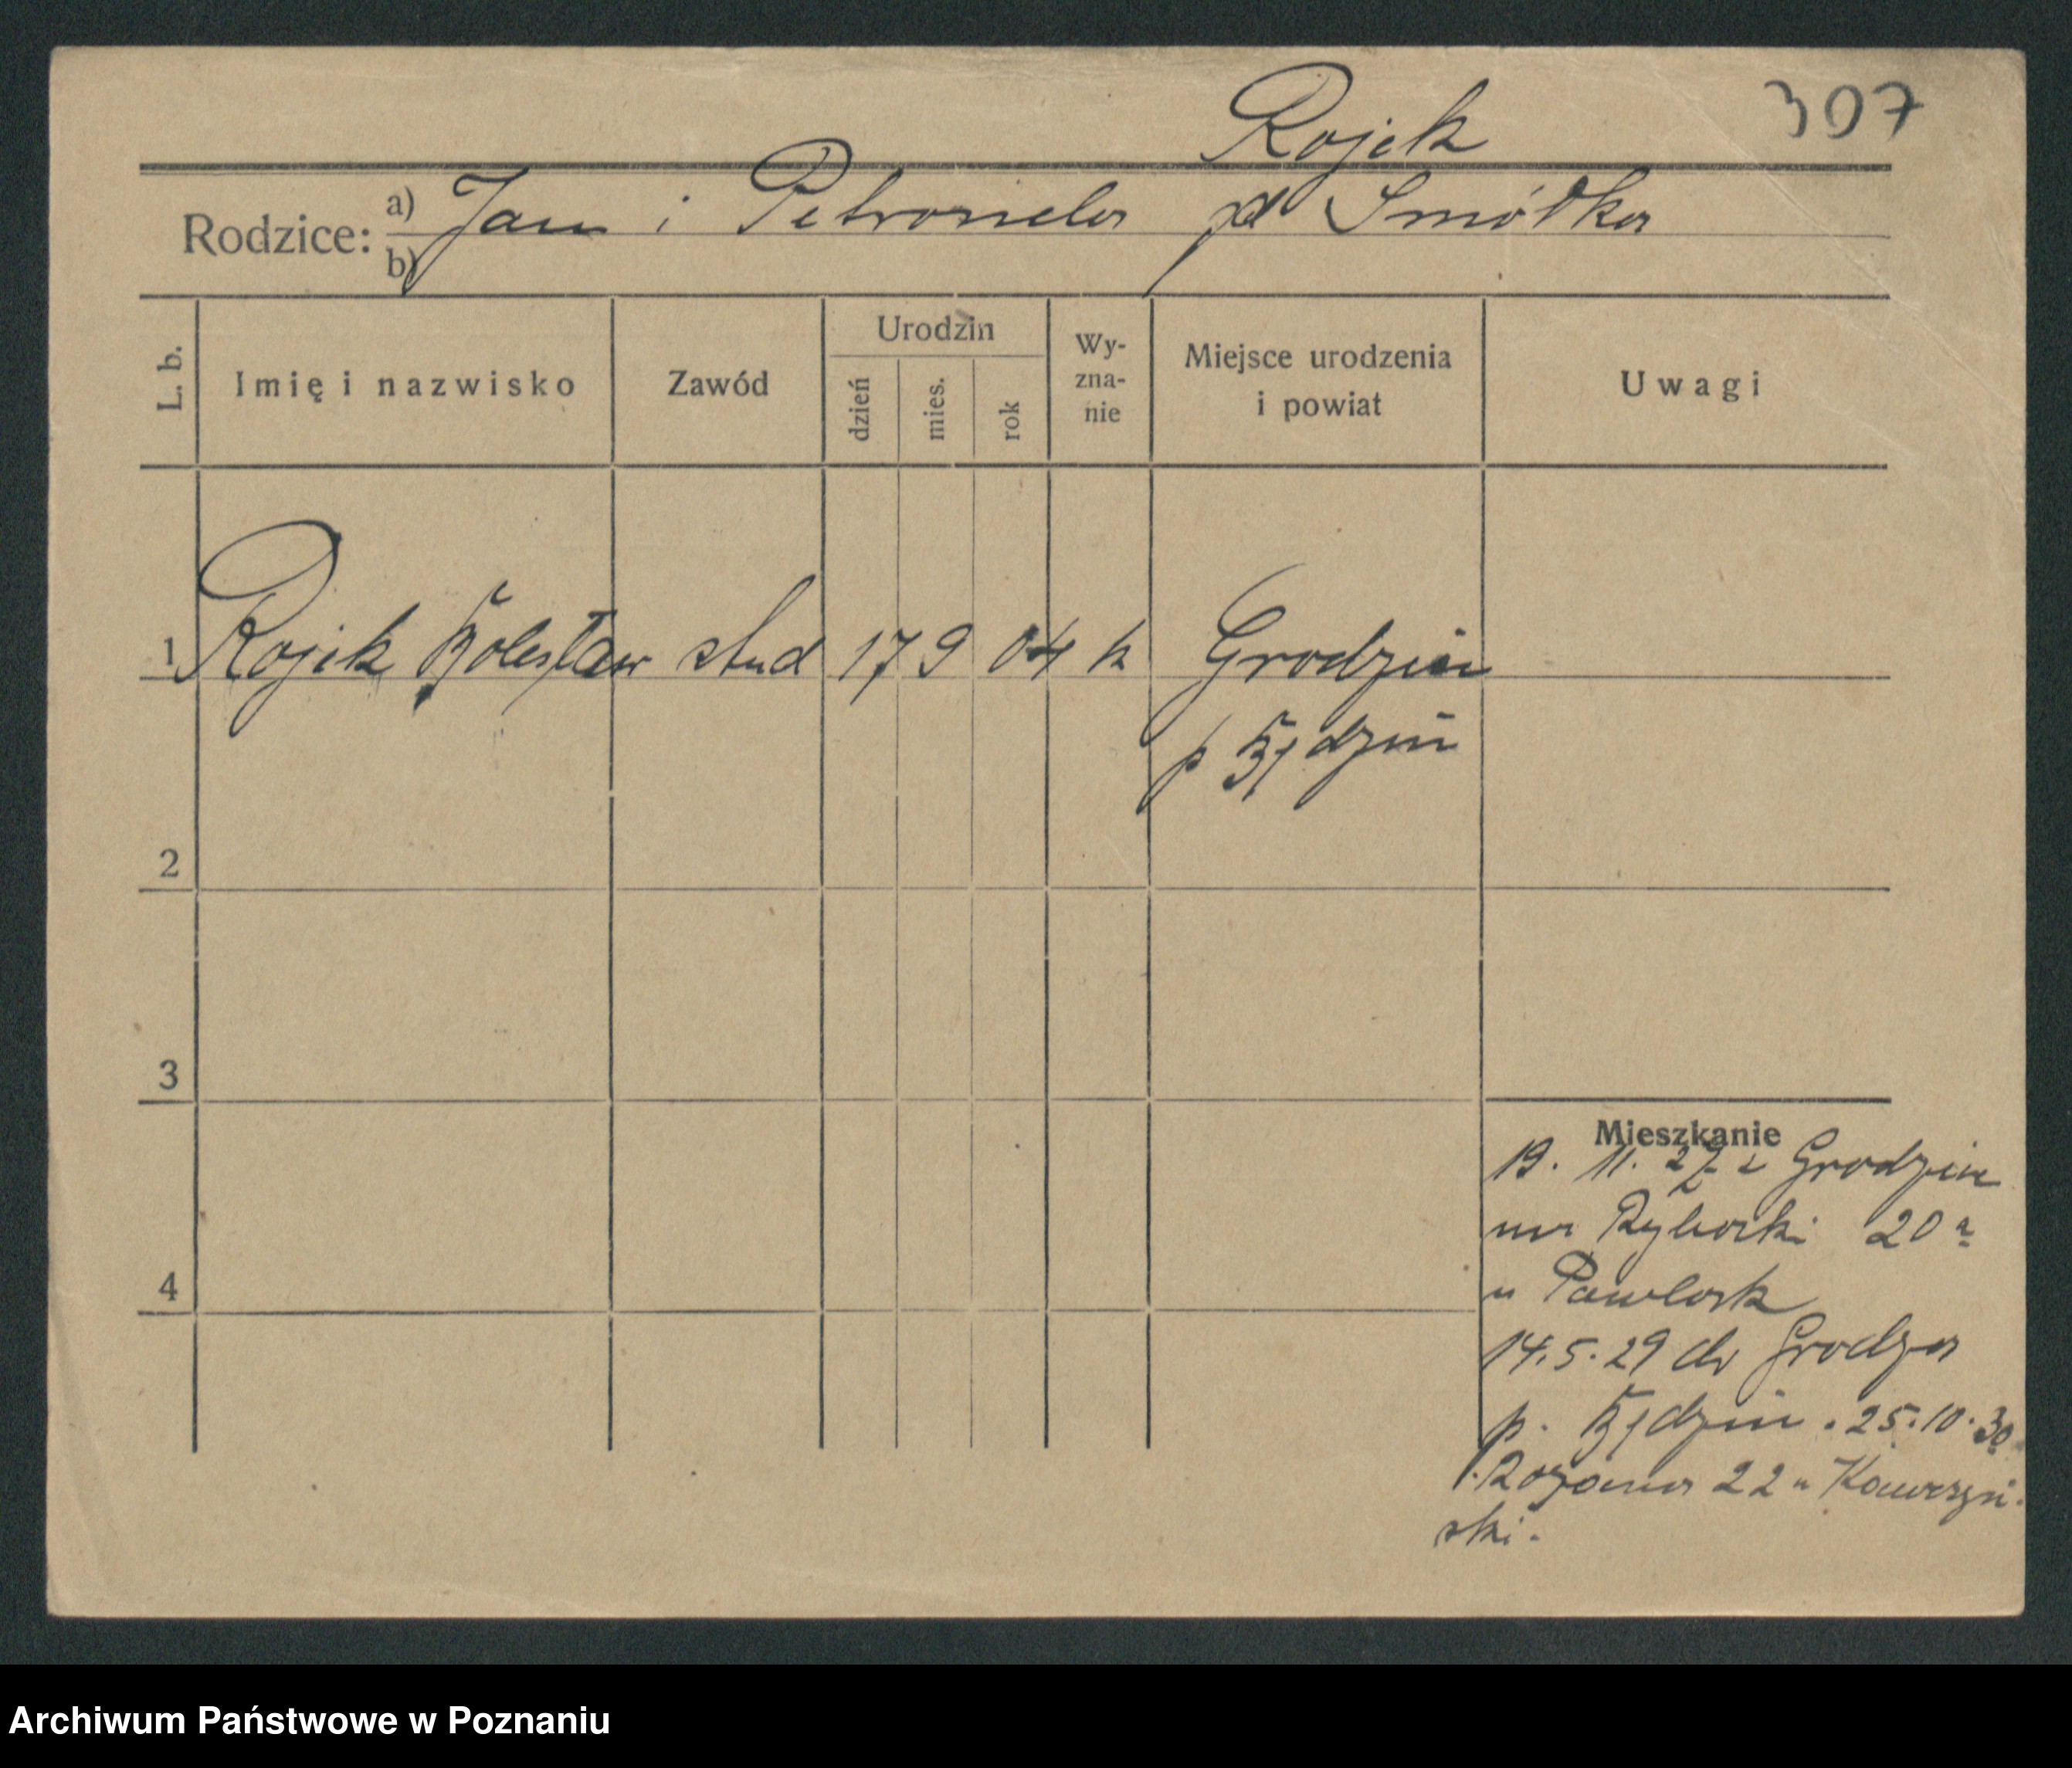 Rojek 307
Rodzice: a) Jan i Petronela zd Smółka
b)
L. b. Imię i nazwisko Zawód Urodzin dzień mies. rok Wy-zna-nie Miejsce urodzenia i powiat Uwagi
1 Rojek Bolesław stud 17 9 04 k Grodziec
p Będzin
2
3
Mieszkanie
19. 11. 27 z Grodziec
na Rybaki 20 a
4
u Pawlak
14.5.29 do Grodzca
p. Będzin. 25.10.30
Różana 22 u Kawczyń-
ski.
Archiwum Państwowe w Poznaniu